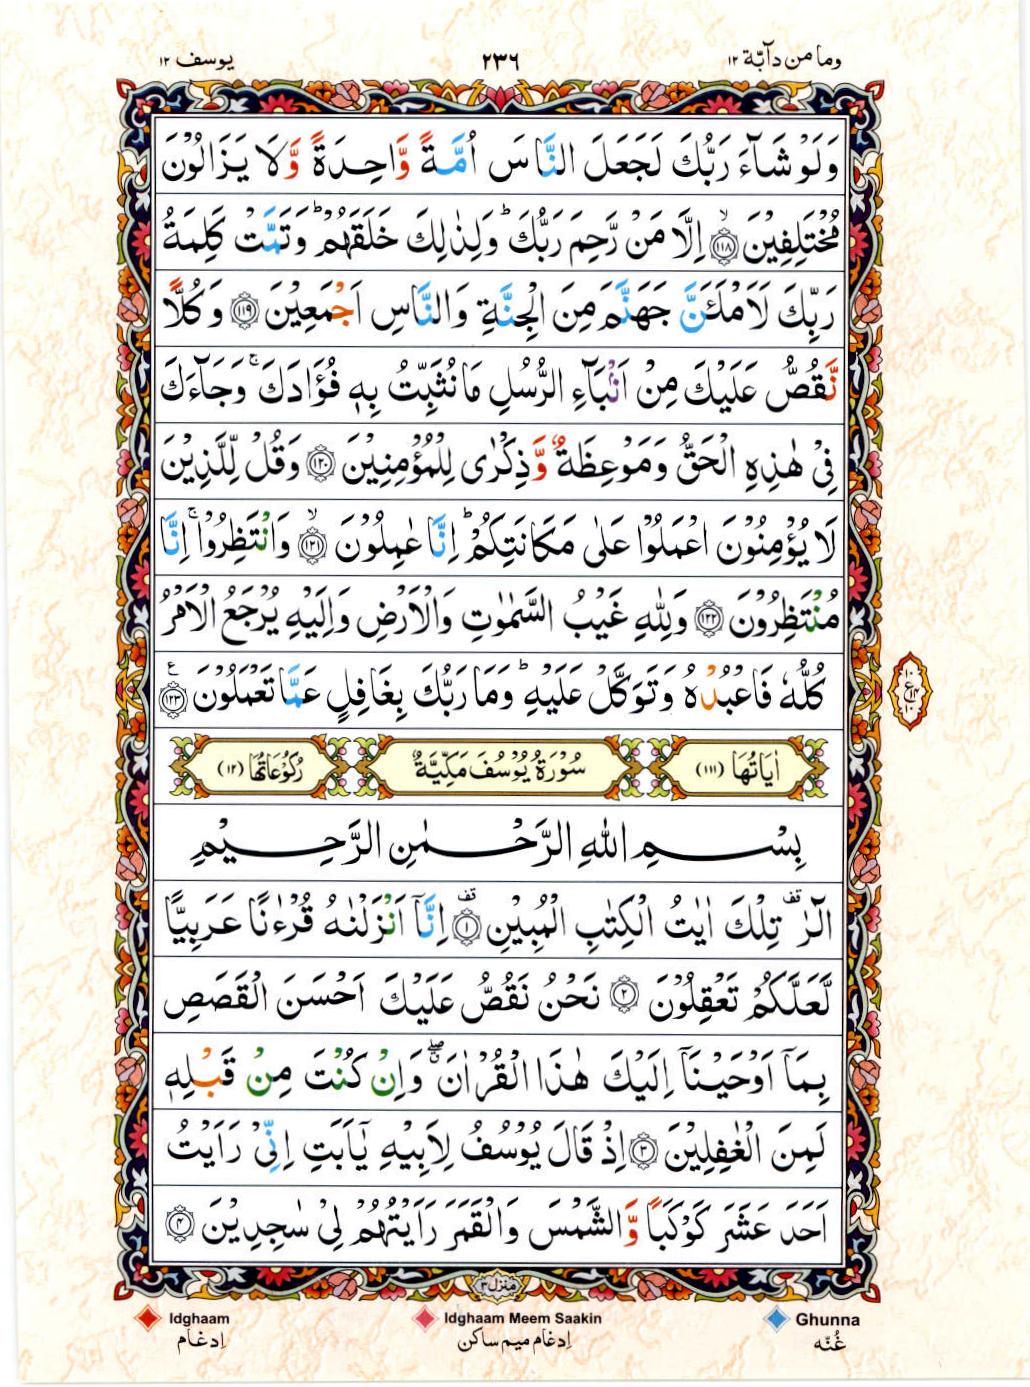 وما من دآبّة ١٢
٢٣٦
يوسف ١٢
وَلَوْ شَآءَ رَبُّكَ لَجَعَلَ النَّاسَ اُمَّةً وَّاحِدَةً وَّلَا يَزَالُوْنَ
مُخْتَلِفِيْنَ ۙ﴿١١٨﴾ اِلَّا مَنْ رَّحِمَ رَبُّكَ ؕ وَلِذٰلِكَ خَلَقَهُمْ ؕ وَتَمَّتْ كَلِمَةُ
رَبِّكَ لَاَمْلَـَٔنَّ جَهَنَّمَ مِنَ الْجِنَّةِ وَالنَّاسِ اَجْمَعِيْنَ ﴿١١٩﴾ وَكُلًّا
نَّقُصُّ عَلَيْكَ مِنْ اَنْۢبَآءِ الرُّسُلِ مَا نُثَبِّتُ بِهٖ فُؤَادَكَ ۚ وَجَآءَكَ
فِىْ هٰذِهِ الْحَقُّ وَمَوْعِظَةٌ وَّذِكْرٰى لِلْمُؤْمِنِيْنَ ﴿١٢٠﴾ وَقُلْ لِّلَّذِيْنَ
لَا يُؤْمِنُوْنَ اعْمَلُوْا عَلٰى مَكَانَتِكُمْ ؕ اِنَّا عٰمِلُوْنَ ۙ﴿١٢١﴾ وَانْتَظِرُوْا ۚ اِنَّا
مُنْتَظِرُوْنَ ﴿١٢٢﴾ وَلِلّٰهِ غَيْبُ السَّمٰوٰتِ وَالْاَرْضِ وَاِلَيْهِ يُرْجَعُ الْاَمْرُ
كُلُّهٗ فَاعْبُدْهُ وَتَوَكَّلْ عَلَيْهِ ؕ وَمَا رَبُّكَ بِغَافِلٍ عَمَّا تَعْمَلُوْنَ ﴿١٢٣﴾ ع
اٰيَاتُهَا (١١١)
سُوْرَةُ يُوْسُفَ مَكِّيَّةٌ
رُكُوْعَاتُهَا (١٢)
بِسْمِ اللّٰهِ الرَّحْمٰنِ الرَّحِيْمِ
الٓرٰ ۟ تِلْكَ اٰيٰتُ الْكِتٰبِ الْمُبِيْنِ ﴿١﴾ اِنَّاۤ اَنْزَلْنٰهُ قُرْءٰنًا عَرَبِيًّا
لَّعَلَّكُمْ تَعْقِلُوْنَ ﴿٢﴾ نَحْنُ نَقُصُّ عَلَيْكَ اَحْسَنَ الْقَصَصِ
بِمَاۤ اَوْحَيْنَاۤ اِلَيْكَ هٰذَا الْقُرْاٰنَ ۖ وَاِنْ كُنْتَ مِنْ قَبْلِهٖ
لَمِنَ الْغٰفِلِيْنَ ﴿٣﴾ اِذْ قَالَ يُوْسُفُ لِاَبِيْهِ يٰۤاَبَتِ اِنِّىْ رَاَيْتُ
اَحَدَ عَشَرَ كَوْكَبًا وَّالشَّمْسَ وَالْقَمَرَ رَاَيْتُهُمْ لِىْ سٰجِدِيْنَ ﴿٤﴾
منزل ٣
Idghaam
Idghaam Meem Saakin
Ghunna
إدغام
إدغام ميم ساكن
غُنّه